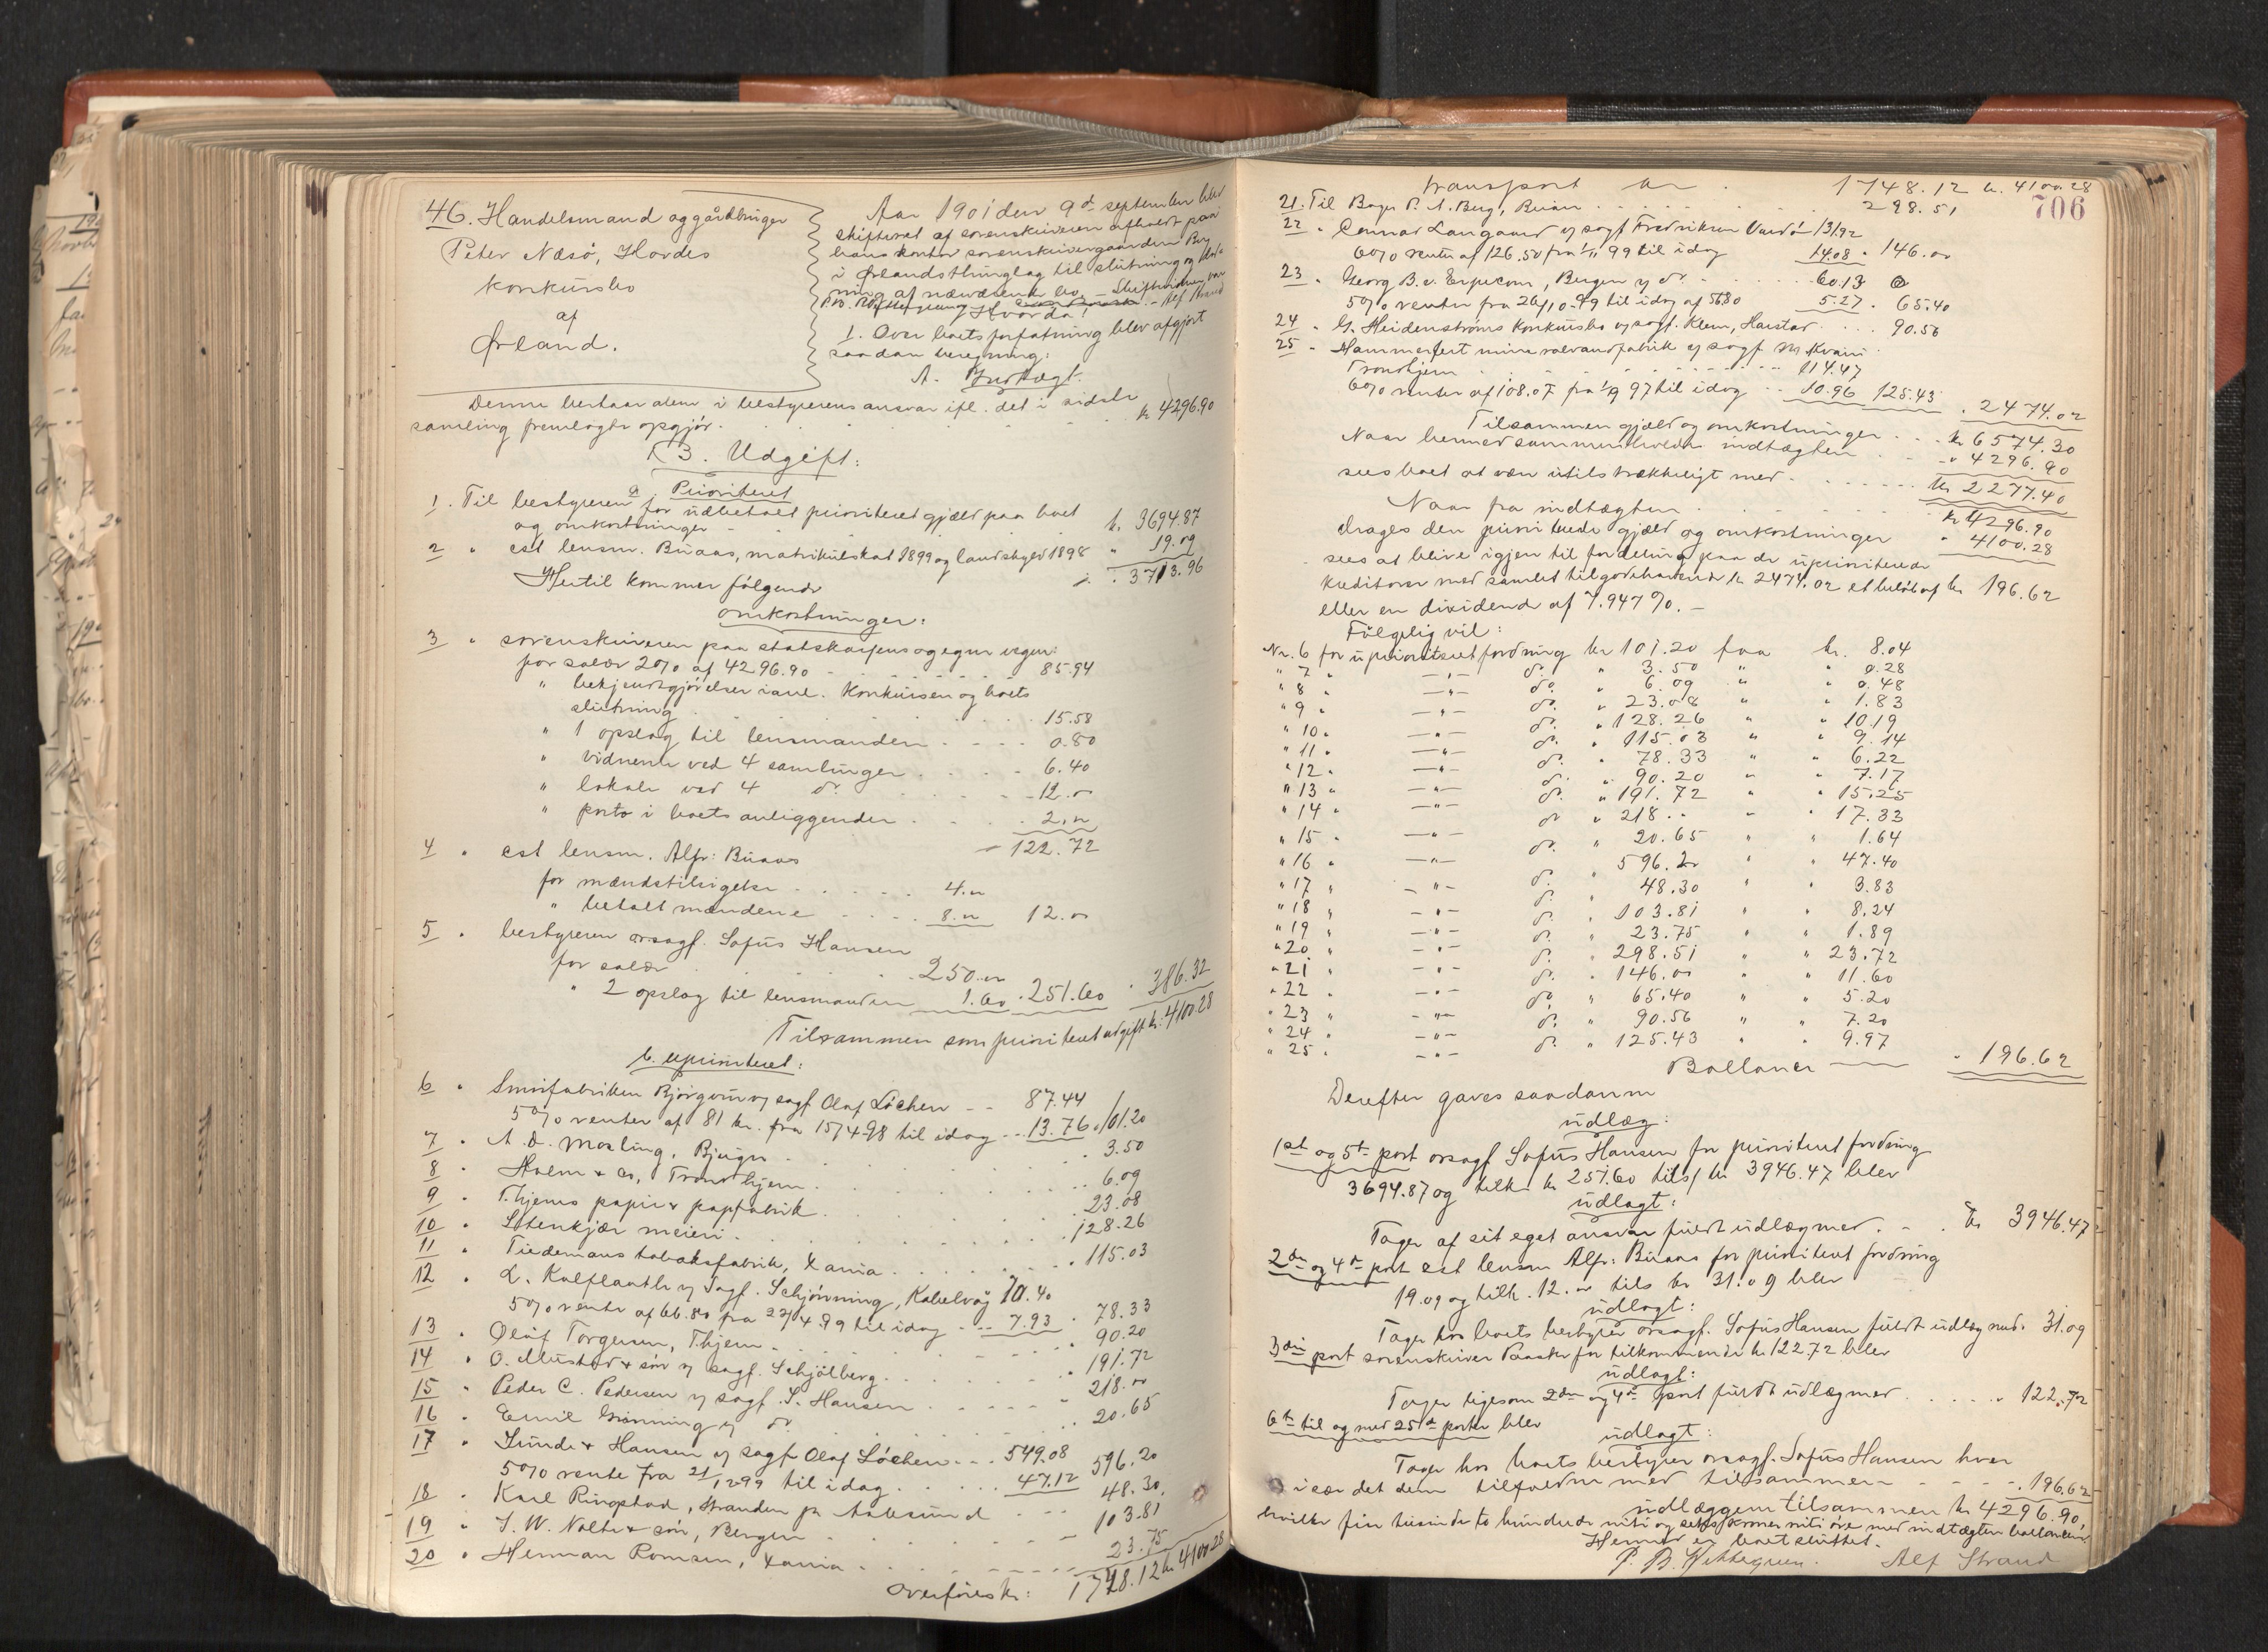 46. Handelsmand og gårdbruger
Peter Næsö, Hovdes
konkursbo
af
Ørland.
Aar 1901 den 9de september blev
skifteret af sorenskriveren afholdt paa
hans kontor sorenskrivergaarden
i Ørlands thinglag til slutning og
ning af nærværende bo. – Skiftevidner var
Alf Strand
Hvorda:
1. Over boets forfatning blev afgjort
saadan beregning:
A. Indtægt.
Denne bestaar alene i bestyrerens ansvar ifl. det i sidste
samling fremlagte opgjör . . . kr 4296.90
B. Udgift:
a. Prioriteret
1. Til bestyreren for udbetalt prioriteret gjæld paa boet
og omkostninger – k. 3694.87
2 " cst lensm. Buaas, matrikulskat 1899 og landskyld 1898 " 19.09
Hertil kommer fölgende . 3713.96
omkostninger:
3 " sorenskriveren paa statskassens og egne vegne:
for salær 2% af 4296.90 . . . 85.94
" bekjendtgjörelser i anl. konkursen og boets
slutning . . . 15.58
" 1 opslag til lensmanden . . . 0.80
" vidnerne ved 4 samlinger . . . 6.40
" lokale ved 4 do. . . . 12.00
" porto i boets anliggender . . . 2.00
122.72
4 " cst lensm. Alfr: Buaas
for mændstilsigelse . . . 4.00
" betalt mændene . . . 8.00 12.00
5 " bestyreren orsagf. Sofus Hansen
for salær . . . 250.00
" 2 opslag til lensmanden 1.60 . 251.60 . 386.32
Tilsammen som prioriteret udgift kr: 4100.28
b. uprioriteret:
6 " Smörfabriken Björgvin v/ sagf Olaf Löchen – – 87.44
5% renter af 81 kr. fra 15/4 98 til idag – – 13.76 . 101.20
7 " A. D. Mosling, Bjugn . . . 3.50
8 " Holm & co, Trondhjem . . . 6.09
9 " T.hjems papir & papfabrik . . . 23.08
10 " Stenkjær meieri . . . 128.26
11 " Tiedemans tobaksfabrik, Xania . . . 115.03
12 " L. Kalflanth v/ sagf. Schjövning, Kabelvåg 70.40
5% rente af 66.80 fra 22/4 99 til idag – – 7.93 . 78.33
13 " Oluf Torgersen, T.hjem . . . 90.20
14 " O. Mustad & sön v/ sagf. Schjölberg . . . 191.72
15 " Peder C. Pedersen v/ sagf. S. Hansen . . . 218.00
16 " Emil Grönning v/ do . . . 20.65
17 " Sunde & Hansen v/ sagf Olaf Löchen – – – 549.08
5% rente fra 21/12 99 til idag . . . 47.12 596.20
18 " Karl Ringstad, Stranden pr Aalesund – – – 48.30
19 " J. W. Nolte & sön, Bergen . . . 103.81
20 " Herman Romsen, Xania . . . 23.75
Overföres kr: 1748.12 kr 4100.28
706
transport kr . 1748.12 k. 4100.28
21. Til Bager P. A. Berg, Brüon . . . 298.51
22 " Conrad Langaard v/ sagf Fredriksen Vardö 131.92
6% rente af 126.50 fra 1/11 99 til idag 14.08 . 146.00
23 " Georg B. v. Erpecom, Bergen v/ do . . . 60.13
5% renter fra 26/10 99 til idag af 56.80 5.27 . 65.40
24 " G. Heidenströms konkursbo v/ sagf. Klem, Harstad . . . 90.56
25 " Hammerfest mineralvandfabrik v/ sagf M Kvam
Trondhjem . . . 114.47
6% renter af 108.07 fra 1/9 97 til idag – – 10.96 125.43 . 2474.02
Tilsammen gjæld og omkostninger . . . kr 6574.30
Naar hermed sammenholdes indtægten . . . " 4296.90
sees boet at være utilstrækkeligt med . . . kr 2277.40
Naar fra indtægten . . . kr 4296.90
drages den prioriterede gjæld og omkostninger " 4100.28
sees at blive igjen til fordeling paa de uprioriterede
kreditorer med samlet tilgodehavende kr 2474.02 et belöb af kr 196.62
eller en dividende af 7.947%. –
Fölgelig vil:
Nr. 6 for uprioriteret fordring kr 101.20 faa kr. 8.04
" 7 " — " — do. " 3.50 " " 0.28
" 8 " — " — do. " 6.09 " " 0.48
" 9 " — " — do. " 23.08 " " 1.83
" 10 " — " — do. " 128.26 " " 10.19
" 11 " — " — do. " 115.03 " " 9.14
" 12 " — " — do. " 78.33 " " 6.22
" 13 " — " — do. " 90.20 " " 7.17
" 14 " — " — do. " 191.72 " " 15.25
" 15 " — " — do " 218.. " " 17.33
" 16 " — " — do. " 20.65 " " 1.64
" 17 " — " — do. " 596.20 " " 47.40
" 18 " — " — do. " 48.30 " " 3.83
" 19 " — " — do. " 103.81 " " 8.24
" 20 " — " — do. " 23.75 " " 1.89
" 21 " — " — do. " 298.51 " " 23.72
" 22 " — " — do. " 146.00 " " 11.60
" 23 " — " — do. " 65.40 " " 5.20
" 24 " — " — do. " 90.56 " " 7.20
" 25 " — " — do. " 125.43 " " 9.97
Ballance —— " 196.62
Derefter gaves saadanne
udlæg:
1st og 5te post orsagf Sofus Hansen for prioriteret fordring
3694.87 og tilk. kr 251.60 tils/ kr 3946.47 blev
udlagt:
Tager af sit eget ansvar fuldt udlæg med . – . kr 3946.47
2den og 4de post cst lensm Alfr: Buaas for prioriteret fordring
19.09 og tilk. 12.00 tils kr 31.09 blev
udlagt:
Tager hos boets bestyrer orsagf. Sofus Hansen fuldt udlæg med . 31.09
3die post sorenskriver for tilkommende kr 122.72 blev
udlagt:
Tager ligesom 2den og 4de post fuldt udlæg med . . . 122.72
6te til og med 25de poster blev
udlagt:
Tager hos boets bestyrer orsagf. Sofus Hansen hver
især det dem tilfaldne med tilsammen – – – . 196.62
udlæggene tilsammen kr 4296.90,
hvilke fire tusinde to hundrede niti og seks kroner niti öre med indtægten ballancerer.
Hermed er boet sluttet.
P. B. Alf Strand